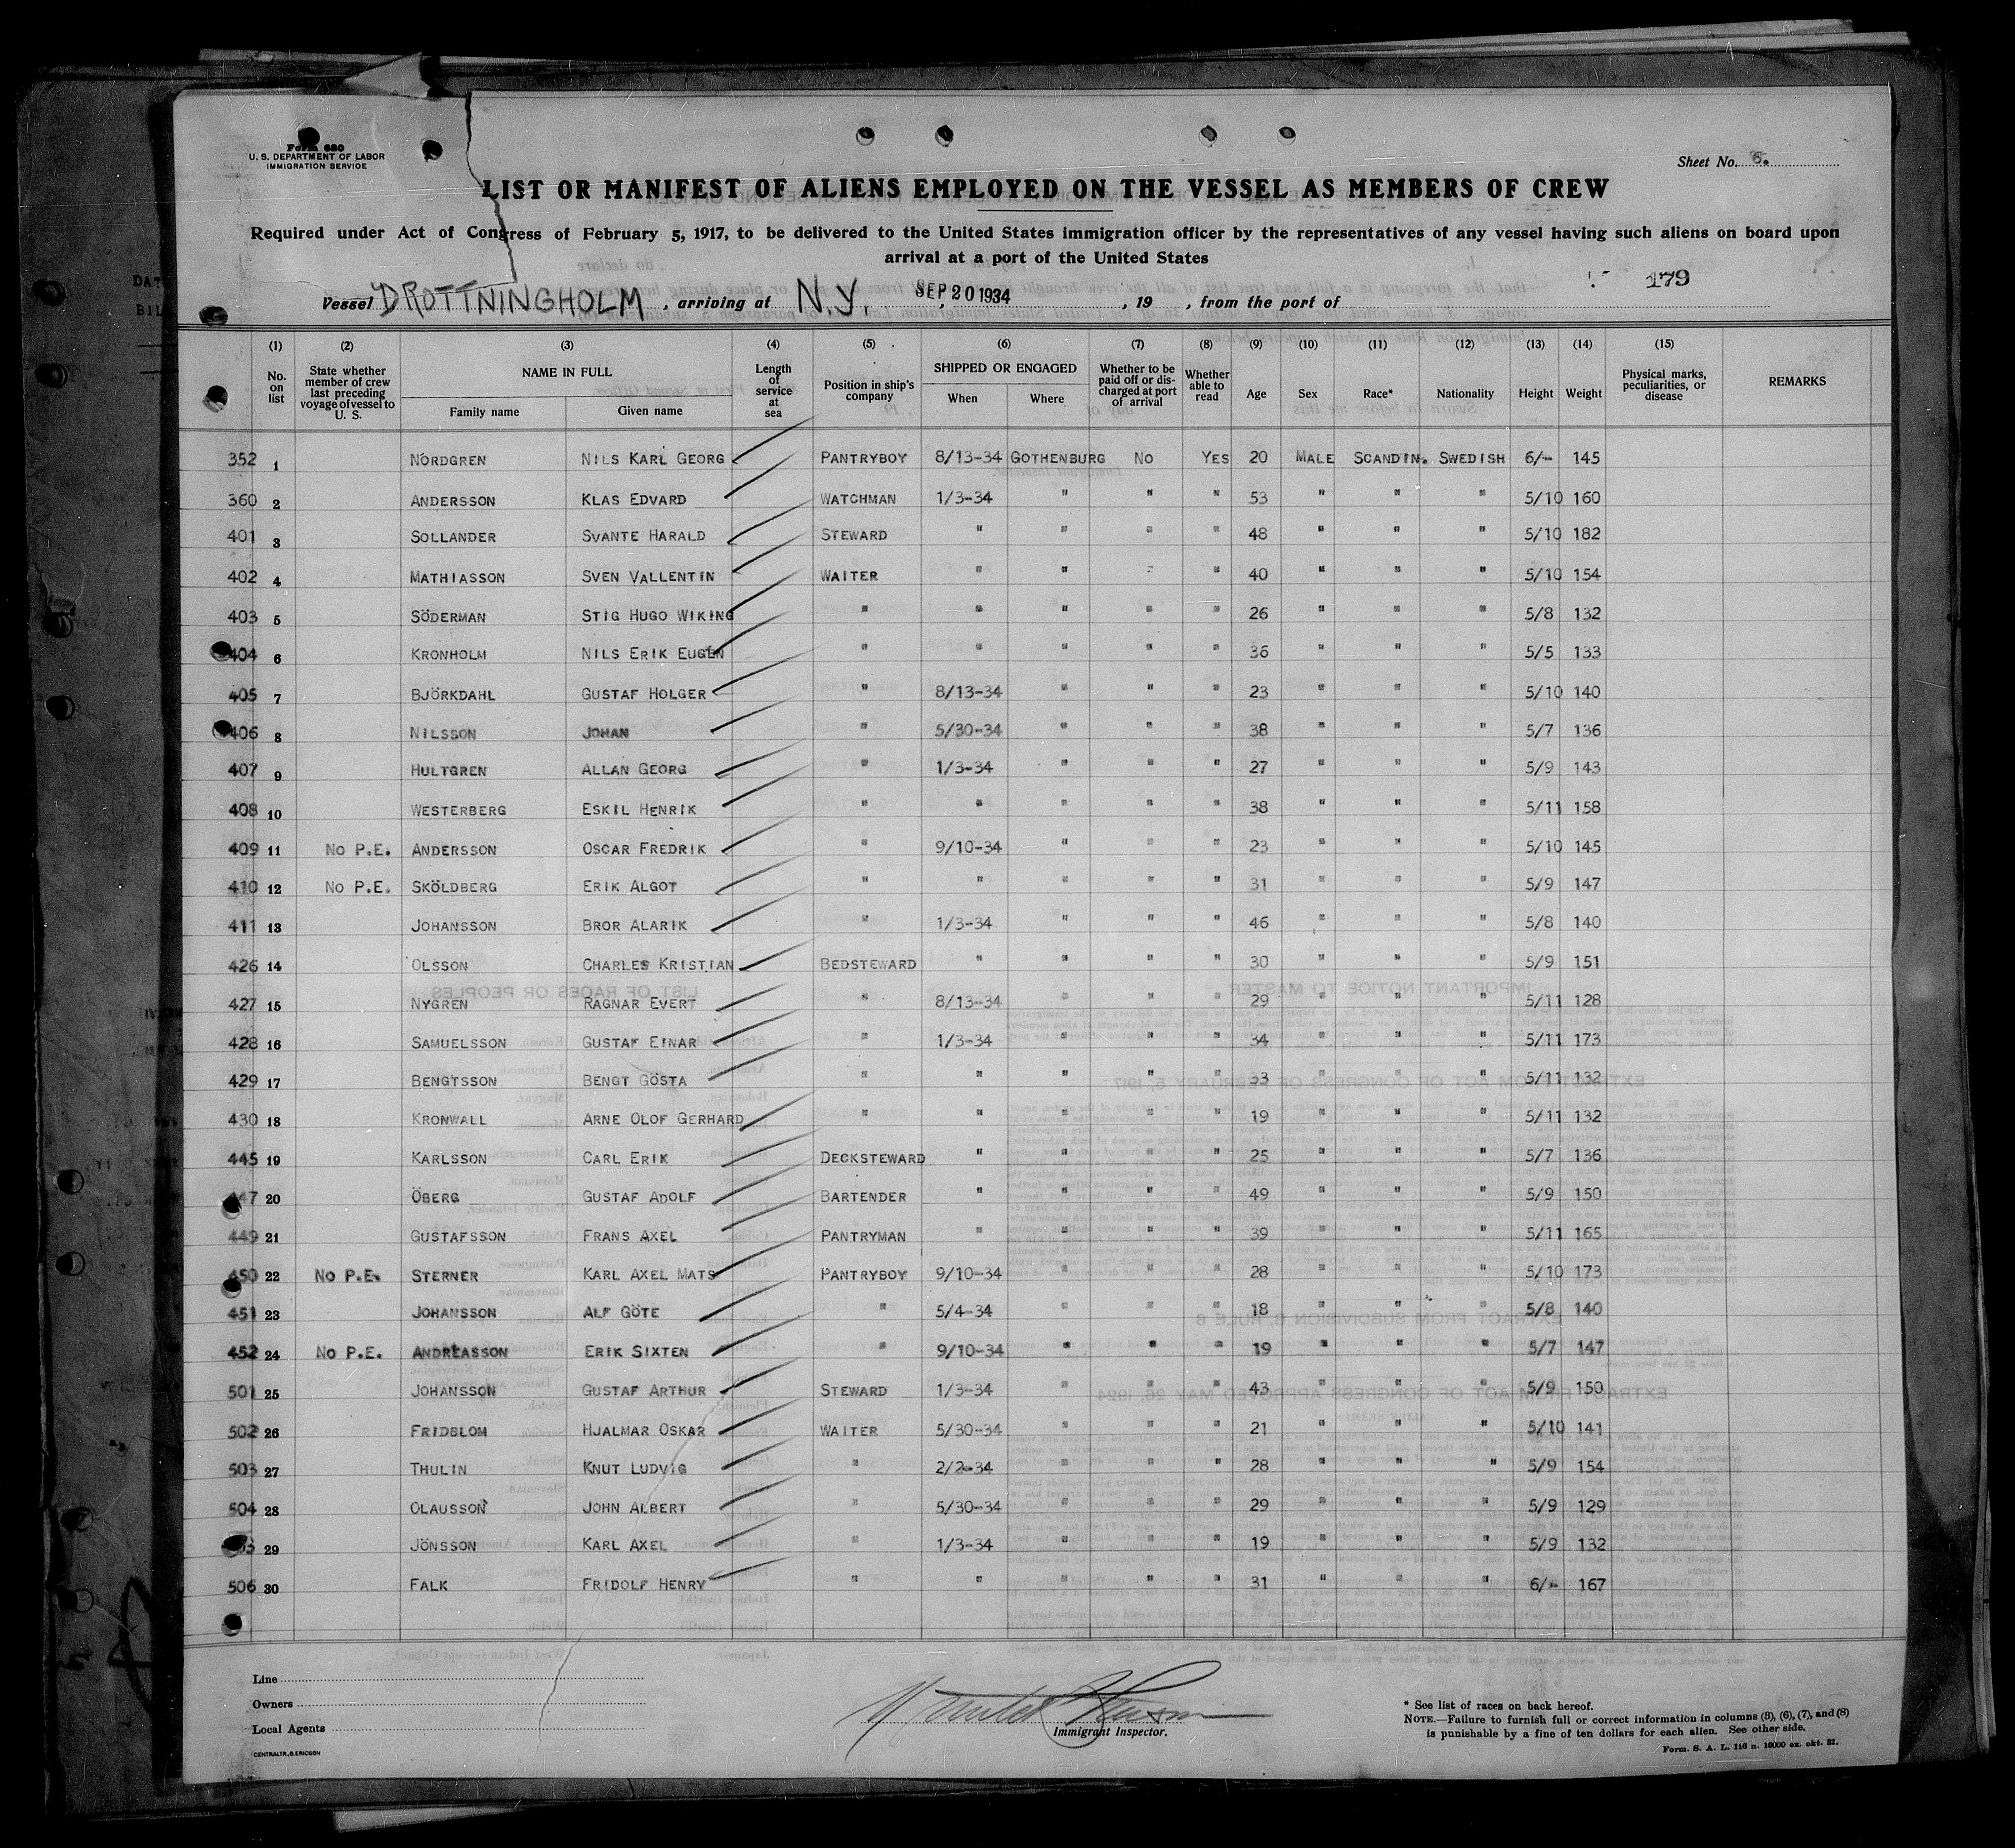 Form 680
U. S. DEPARTMENT OF LABOR
IMMIGRATION SERVICE
Sheet No. 6.
LIST OR MANIFEST OF ALIENS EMPLOYED ON THE VESSEL AS MEMBERS OF CREW
Required under Act of Congress of February 5, 1917, to be delivered to the United States immigration officer by the representatives of any vessel having such aliens on board upon
arrival at a port of the United States
179
Vessel DROTTNINGHOLM, arriving at N.Y. SEP 20 1934, 19 , from the port of
(1) (2) (3) (4) (5) (6) (7) (8) (9) (10) (11) (12) (13) (14) (15)
No. on list State whether member of crew last preceding voyage of vessel to U. S. NAME IN FULL Family name Given name Length of service at sea Position in ship's company SHIPPED OR ENGAGED When Where Whether to be paid off or discharged at port of arrival Whether able to read Age Sex Race* Nationality Height Weight Physical marks, peculiarities, or disease REMARKS
352 1 NORDGREN NILS KARL GEORG PANTRYBOY 8/13-34 GOTHENBURG NO YES 20 MALE SCANDIN. SWEDISH 6/- 145
360 2 ANDERSSON KLAS EDVARD WATCHMAN 1/3-34 " " " 53 " " " 5/10 160
401 3 SOLLANDER SVANTE HARALD STEWARD " " " " 48 " " " 5/10 182
402 4 MATHIASSON SVEN VALLENTIN WAITER " " " " 40 " " " 5/10 154
403 5 SÖDERMAN STIG HUGO WIKING " " " " " 26 " " " 5/8 132
404 6 KRONHOLM NILS ERIK EUGEN " " " " " 36 " " " 5/5 133
405 7 BJÖRKDAHL GUSTAF HOLGER " 8/13-34 " " " 23 " " " 5/10 140
406 8 NILSSON JOHAN " 5/30-34 " " " 38 " " " 5/7 136
407 9 HULTGREN ALLAN GEORG " 1/3-34 " " " 27 " " " 5/9 143
408 10 WESTERBERG ESKIL HENRIK " " " " " 38 " " " 5/11 158
409 11 NO P.E. ANDERSSON OSCAR FREDRIK " 9/10-34 " " " 23 " " " 5/10 145
410 12 NO P.E. SKÖLDBERG ERIK ALGOT " " " " " 31 " " " 5/9 147
411 13 JOHANSSON BROR ALARIK " 1/3-34 " " " 46 " " " 5/8 140
426 14 OLSSON CHARLES KRISTIAN BEDSTEWARD " " " " 30 " " " 5/9 151
427 15 NYGREN RAGNAR EVERT " 8/13-34 " " " 29 " " " 5/11 128
428 16 SAMUELSSON GUSTAF EINAR " 1/3-34 " " " 34 " " " 5/11 173
429 17 BENGTSSON BENGT GÖSTA " " " " " 33 " " " 5/11 132
430 18 KRONWALL ARNE OLOF GERHARD " " " " " 19 " " " 5/11 132
445 19 KARLSSON CARL ERIK DECKSTEWARD " " " " 25 " " " 5/7 136
447 20 ÖBERG GUSTAF ADOLF BARTENDER " " " " 49 " " " 5/9 150
449 21 GUSTAFSSON FRANS AXEL PANTRYMAN " " " " 39 " " " 5/11 165
450 22 NO P.E. STERNER KARL AXEL MATS PANTRYBOY 9/10-34 " " " 28 " " " 5/10 173
451 23 JOHANSSON ALF GÖTE " 5/4-34 " " " 18 " " " 5/8 140
452 24 NO P.E. ANDREASSON ERIK SIXTEN " 9/10-34 " " " 19 " " " 5/7 147
501 25 JOHANSSON GUSTAF ARTHUR STEWARD 1/3-34 " " " 43 " " " 5/9 150
502 26 FRIDBLOM HJALMAR OSKAR WAITER 5/30-34 " " " 21 " " " 5/10 141
503 27 THULIN KNUT LUDVIG " 2/2-34 " " " 28 " " " 5/9 154
504 28 OLAUSSON JOHN ALBERT " 5/30-34 " " " 29 " " " 5/9 129
29 JÖNSSON KARL AXEL " 1/3-34 " " " 19 " " " 5/9 132
506 30 FALK FRIDOLF HENRY " " " " " 31 " " " 6/- 167
Line
Owners
Local Agents
CENTRALTR, G. ERICSON
Immigrant Inspector.
* See list of races on back hereof.
NOTE.—Failure to furnish full or correct information in columns (3), (6), (7), and (8)
is punishable by a fine of ten dollars for each alien. See other side.
Form. S. A. L. 116 n. 10000 ex. okt. 31.